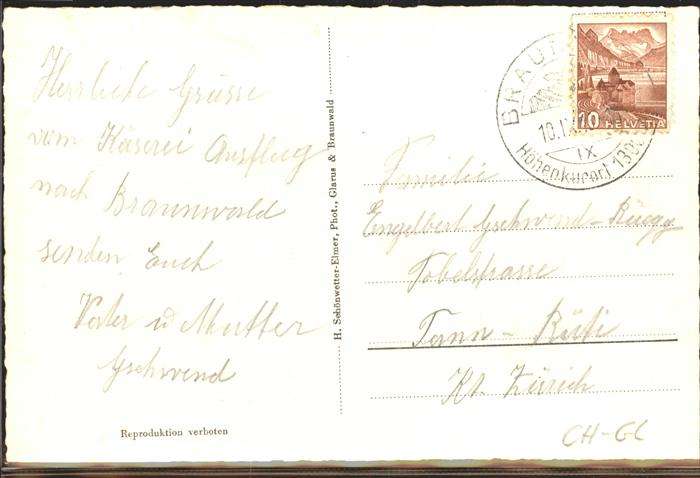 Herrliche Grüsse
vom Käserei Ausflug
nach Braunwald
senden Euch
Vater u Mutter
Gschwend
Reproduktion verboten
H. Schönwetter-Elmer, Phot., Glarus & Braunwald
BRAUN
10. IX
IX
Höhenkurort 130
10 HELVETIA
Familie
Engelbert Gschwend-Rüegg
Tobelstrasse
Tann - Rüti
Kt. Zürich
CH-GL